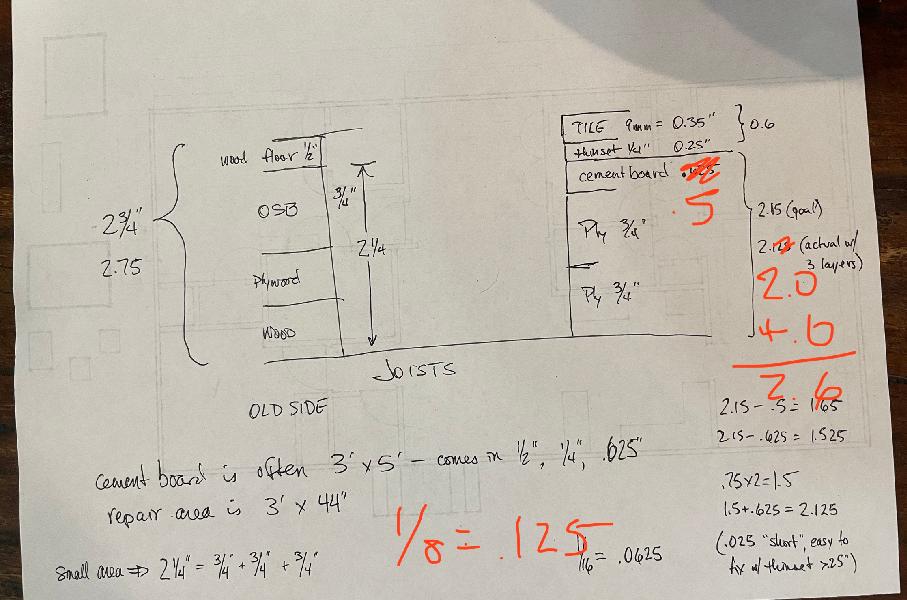 wood floor 1/2"
OSB
Plywood
WOOD
2 3/4"
2.75
3/4"
2 1/4
JOISTS
OLD SIDE
TILE 9mm = 0.35"
thinset 1/4" 0.25"
0.6
cement board
.5
Ply 3/4"
Ply 3/4"
2.15 (goal)
(actual w/
3 layers)
2.0
+.6
2.6
2.15 - .5 = 1.65
2.15 - .625 = 1.525
.75x2=1.5
1.5+.625 = 2.125
(.025 "short", easy to
fix w/ thinset >.25")
cement board is often 3' x 5' - comes in 1/2", 1/4", .625"
repair area is 3' x 44"
1/8 = .125
1/16 = .0625
small area => 2 1/4" = 3/4" + 3/4" + 3/4"